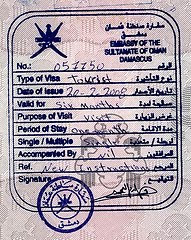 سفارة سلطنة عُمان
دمشق
EMBASSY OF THE
SULTANATE OF OMAN
DAMASCUS
No.: 057750 الرقم
Type of Visa Tourist نوع التأشيرة
Date of Issue 20-2-2008 تاريخ الإصدار
Valid for Six Months صالحة لمدة
Purpose of Visit Visit غرض الزيارة
Period of Stay One مدة الاقامة
Single / Multiple
Accompanied By المرافقون
Ref. New Instructions المرجع
Signature التوقيع